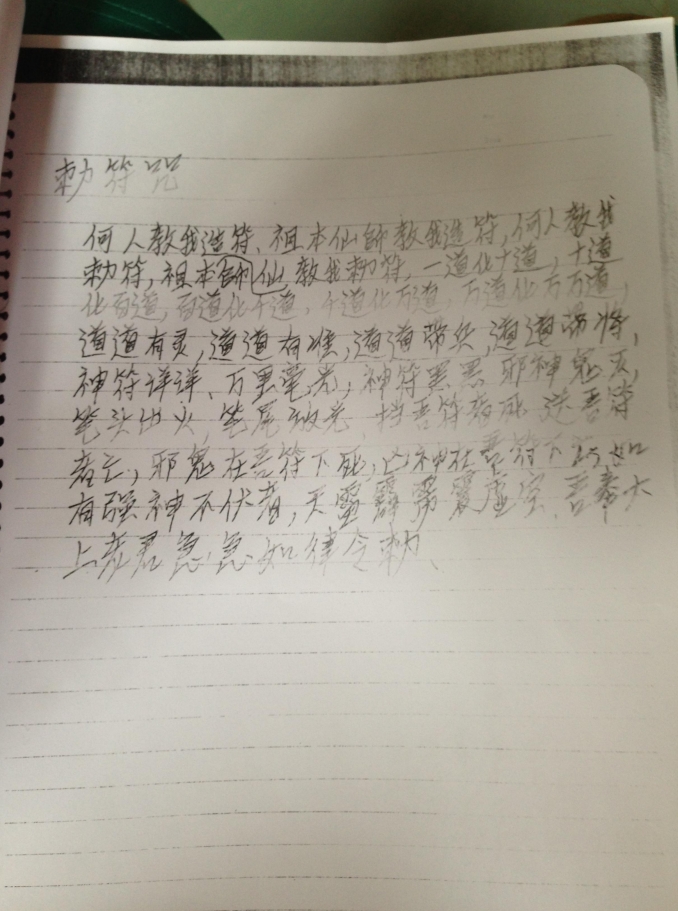 勅符咒
何人教我造符、祖本仙師教我造符,何人教我
勅符,祖本師仙教我勅符,一道化十道,十道
化百道,百道化千道,千道化万道,万道化万万道,
道道有灵,道道有准,道道带兵,道道带将,
神符详详、万里毫光,神符黑黑邪神鬼灭,
笔头出火,笔尾放光,挡吾符者死逆吾符
者亡,邪鬼在吾符下死,凶神在吾符下 如
有强神不伏者,天雷霹雳震虚空、吾奉太
上老君急急如律令勅、